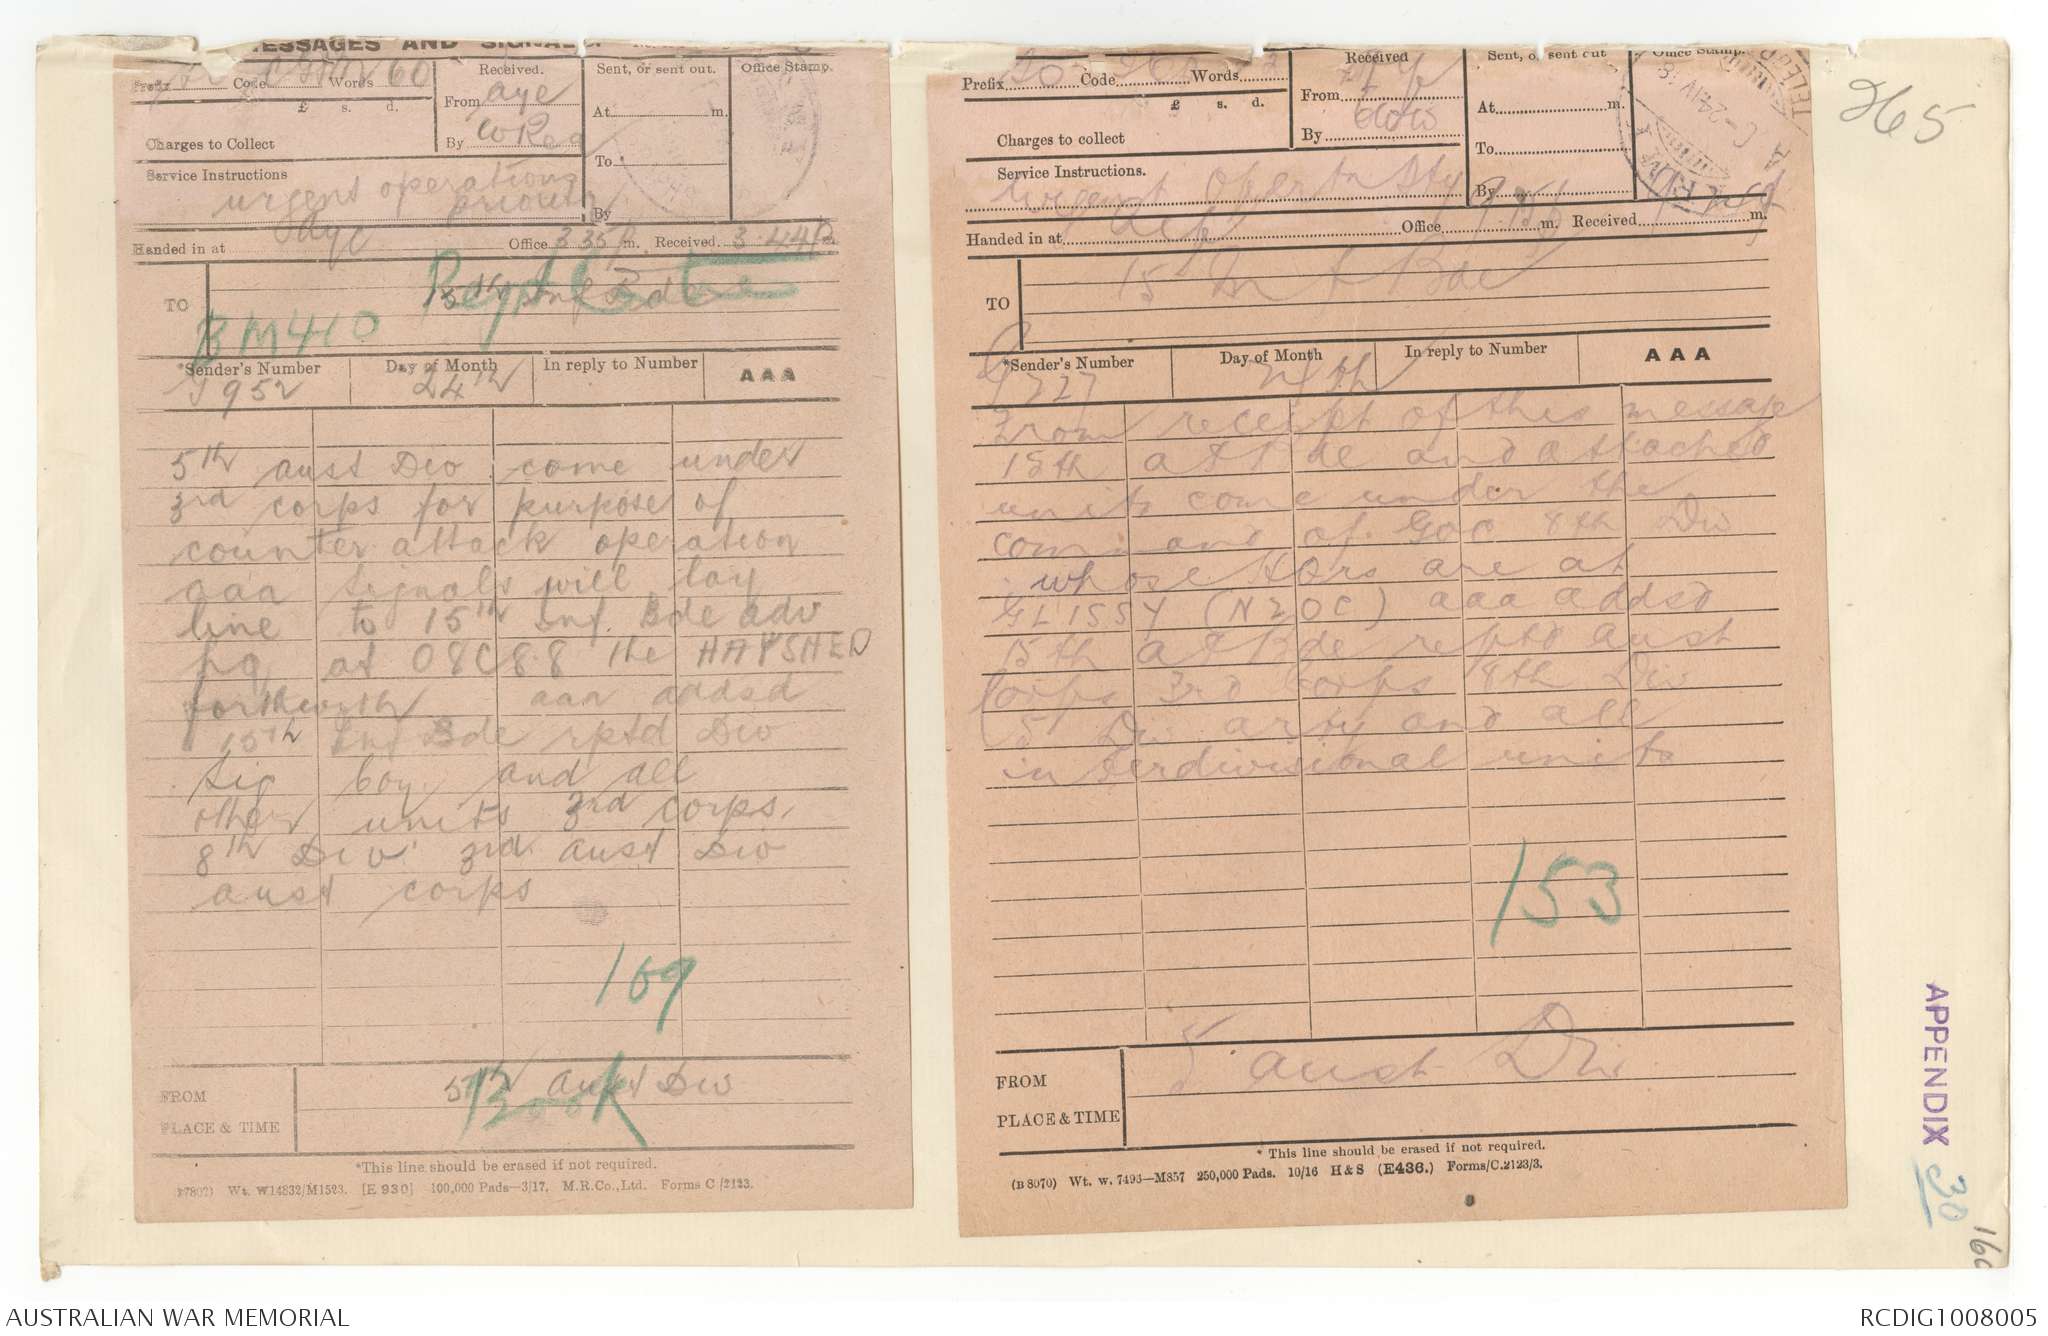 MESSAGES AND SIGNALS.
Prefix Code Words 60
£ s. d.
Charges to Collect
Received.
From aye
By
Sent, or sent out.
At m.
To
By
Office Stamp.
Service Instructions
urgent operations
priority
Handed in at aye Office 3 35 p m. Received 3.44 P m.
TO 15th Inf Bde
BM410
*Sender's Number
Day of Month
In reply to Number
AAA
G952
24th
5th aust Div come under
3rd corps for purpose of
counter attack operation
aaa signals will lay
line to 15th Inf. Bde adv
hq at O8C8.8 the HAYSHED
forthwith aaa addsd
15th Inf Bde rptd Div
sig coy. and all
other units 3rd corps.
8th Div 3rd aust Div
aust corps
109
FROM
PLACE & TIME
5th Aust Div
Book
*This line should be erased if not required.
Wt. W14832/M1523. [E 930] 100,000 Pads—3/17. M.R.Co., Ltd. Forms C/2123.
Prefix Code Words
£ s. d.
Charges to collect
Received
From
By
Sent, or sent out
At m.
To
By
Office Stamp.
Service Instructions.
Urgent Opertn Priority
Handed in at Office m. Received m.
TO 15 Inf Bde
*Sender's Number
Day of Month
In reply to Number
AAA
G727
24th
From receipt of this message
15th AI Bde and attached
units come under the
command of GOC 8th Div
whose HQrs are at
GLISSY (N20C) aaa addsd
15th AI Bde reptd Aust
Corps 3rd Corps 8th Div
5 Div arty and all
interdivisional units
153
FROM
PLACE & TIME
5 Aust Div
* This line should be erased if not required.
(B 8070) Wt. W. 7493—M857 250,000 Pads. 10/16 H & S (E436.) Forms/C.2123/3.
265
APPENDIX 30
AUSTRALIAN WAR MEMORIAL
RCDIG1008005